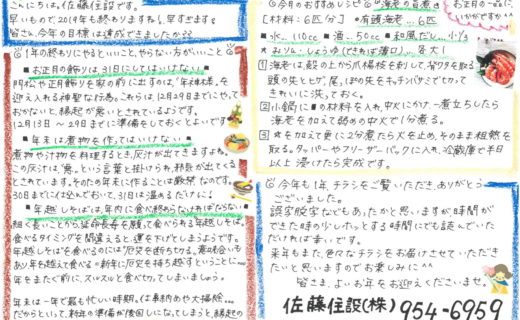 こんにちは。佐藤住設です。
早いもので2019年も終わりますね！早すぎます!
皆さん、今年の目標は達成できましたか??
1年の終わりにやるといいこと、やらない方がいいこと
■お正月の飾りは31日にしてはいけない■
門松や正月飾りを家の前に出すのは、「年神様」を
迎え入れる神聖な行為。これらは、12月29日までにやって
おかないと、縁起が悪いとされているようです。
12月13日～29日までに準備をしておくとよいです
■年末は煮物を作ってはいけない■
煮物や汁物を料理するとき、灰汁が出てきますよね。
この灰汁は「悪」という言葉と掛けられ、邪気が出てくる
とされています。そのため年末に作ることは厳禁なのです。
30日までには作っておいて、31日は温めるだけに!
■年越しそばは、年内に食べ終わらなければならない
細く長いことから延命長寿を願って食べられる年越しそば。
食べるタイミングを間違えると運を下げてしまうようです。
年越しそばを食べるのには「厄災を断ち切る」意味合いも
あり年を越えて食べる=新年に厄災を持ち越すということに…
年をまたぐ前に、ズルズルッと食べ切ってしまいましょう。
年末は一年で最も忙しい時期。仕事納めや大掃除…
だからといって、新年の準備が後回しになってしまうと、縁起の
今月のおすすめレシピ 海老の旨煮
お正月の一品に
いかがですか^^
[材料:6匹分] ●有頭海老…6匹
■水…110cc ■酒…50cc ■和風だし…小1/2
★おりもしょうゆ(できれば薄口)…各大1
1 海老は、殻の上から爪楊枝を刺して、背ワタを取る
頭の先とヒゲ、尾、ほの先をキッチンバサミで切って
きれいに洗っておく。
2 小鍋に■の材料を入れ、中火にかけ一煮立ちしたら
海老を加えて弱めの中火で1分煮る。
3 ★を加えて更に2分煮たら火を止め、そのまま粗熱を
取る。タッパーやフリーザーパックに入れ、冷蔵庫で半日
以上浸けたら完成です。
今年も1年、チラシをご覧いただき、ありがとう
ございました。
誤字脱字などもあったかと思いますが、時間が
できた時の少しホッとする時間にでも読んでいた
だければ幸いです。
来年もまた、色々なチラシをお届けさせていただき
たいと思いますのでお楽しみに^^
皆さま、よいお年をお迎えくださいませ。
佐藤住設(株) 954-6959